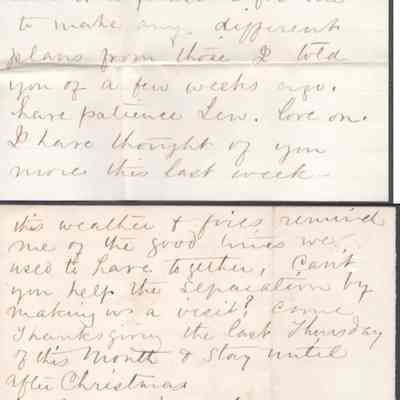 to make any different
plans from those I told
you of a few weeks ago.
have patience Lew. love on.
I have thought of you
more this last week
this weather & fires remind
me of the good times we
used to have together, Can't
you help the separation by
making us a visit? Come
Thanksgiving the last Thursday
of this Month & Stay until
after Christmas